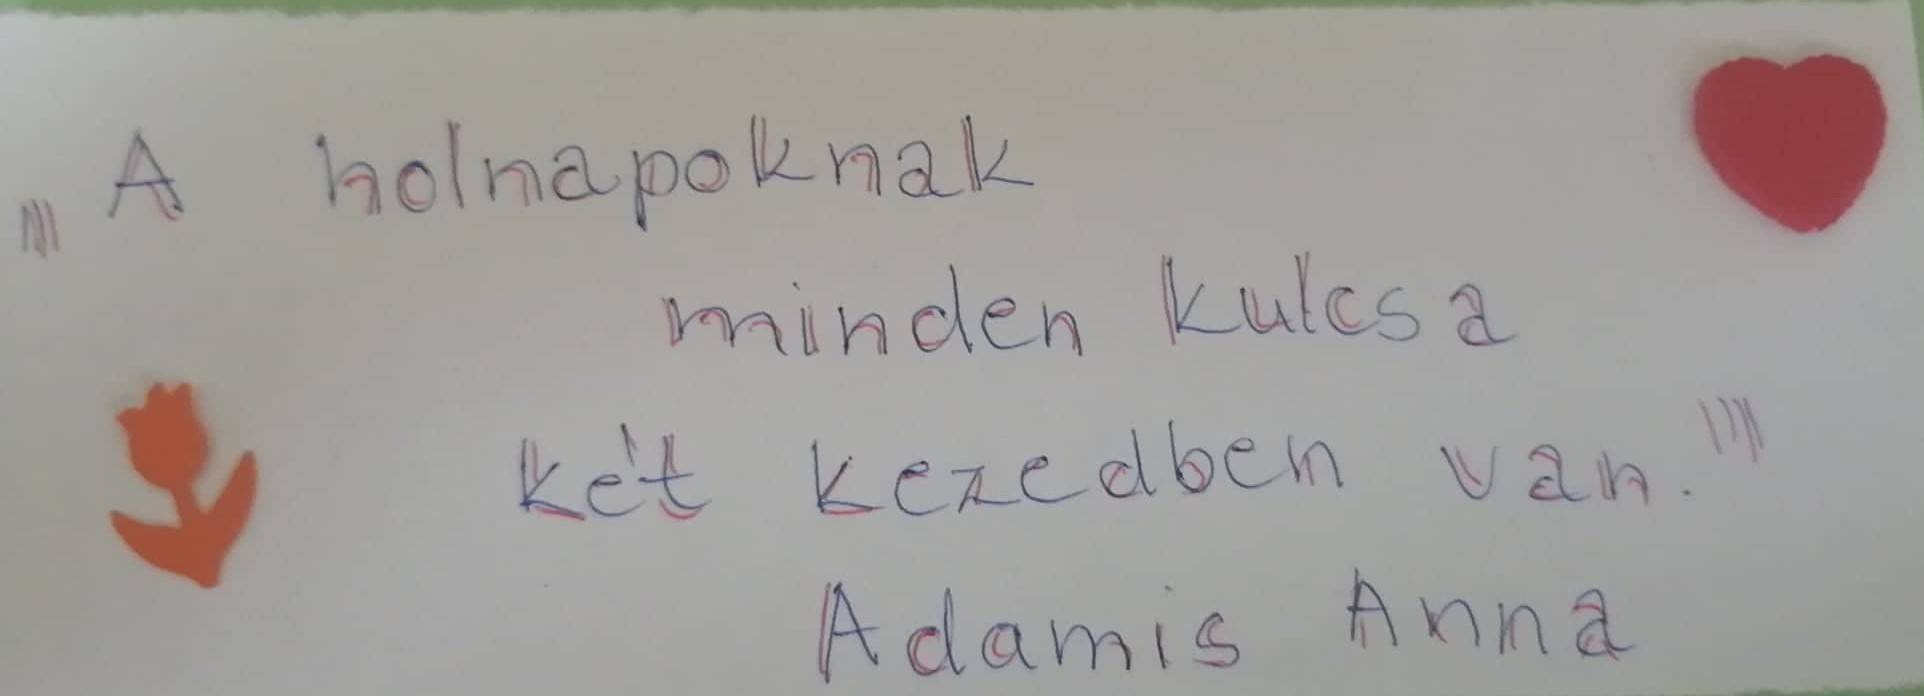 „A holnapoknak
minden kulcsa
két kezedben van."
Adamis Anna